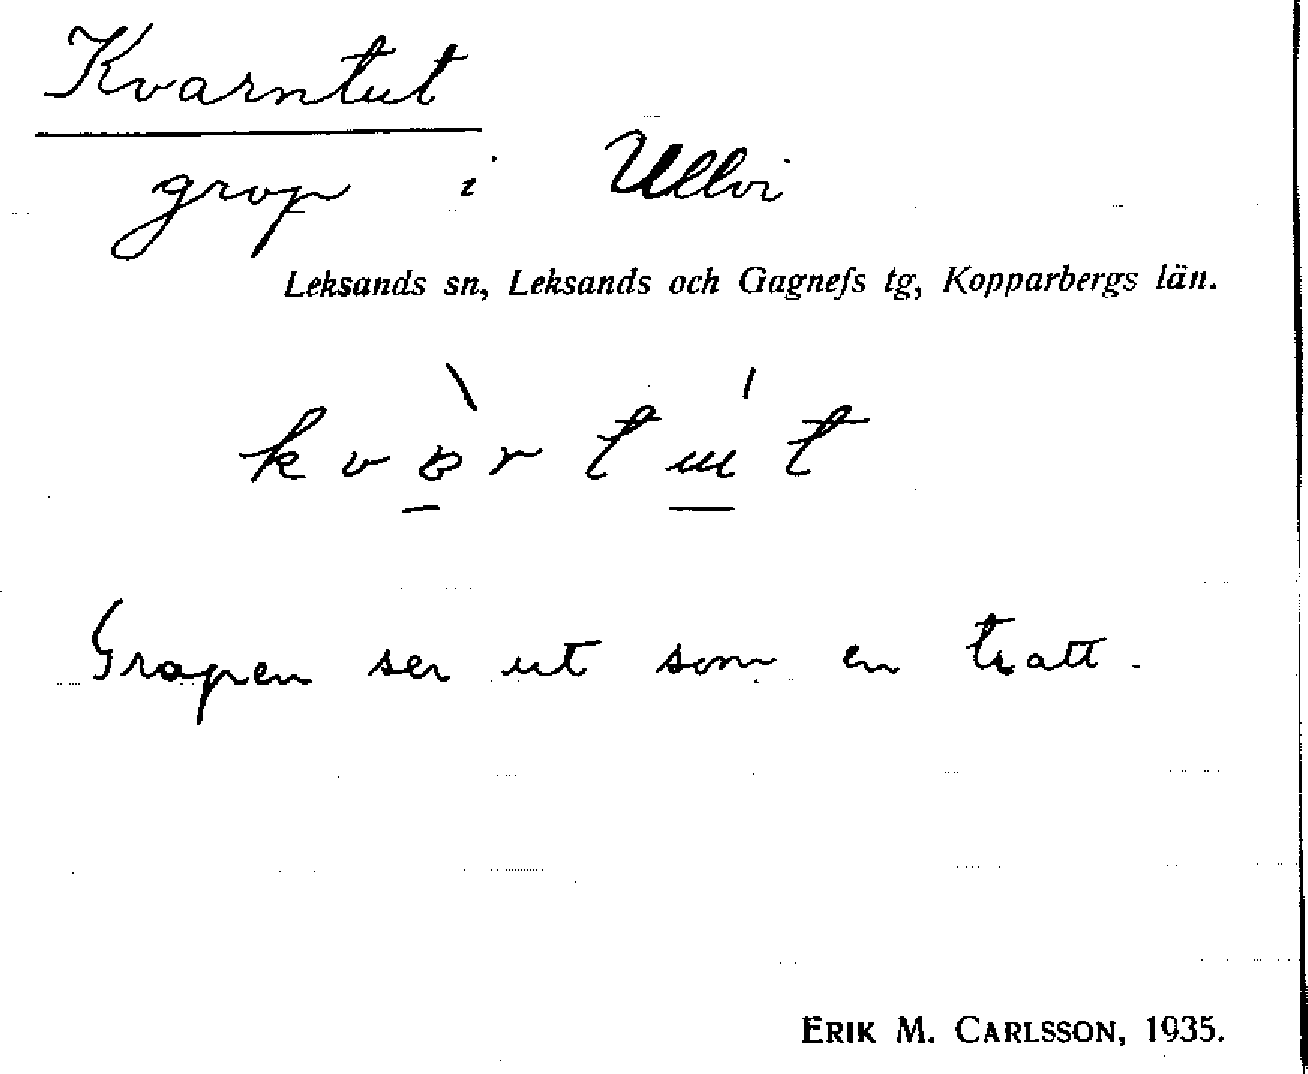 Kvarntut
grop i Ullvi
Leksands sn, Leksands och Gagnefs tg, Kopparbergs län.
Gropen ser ut som en tratt.
ERIK M. CARLSSON, 1935.